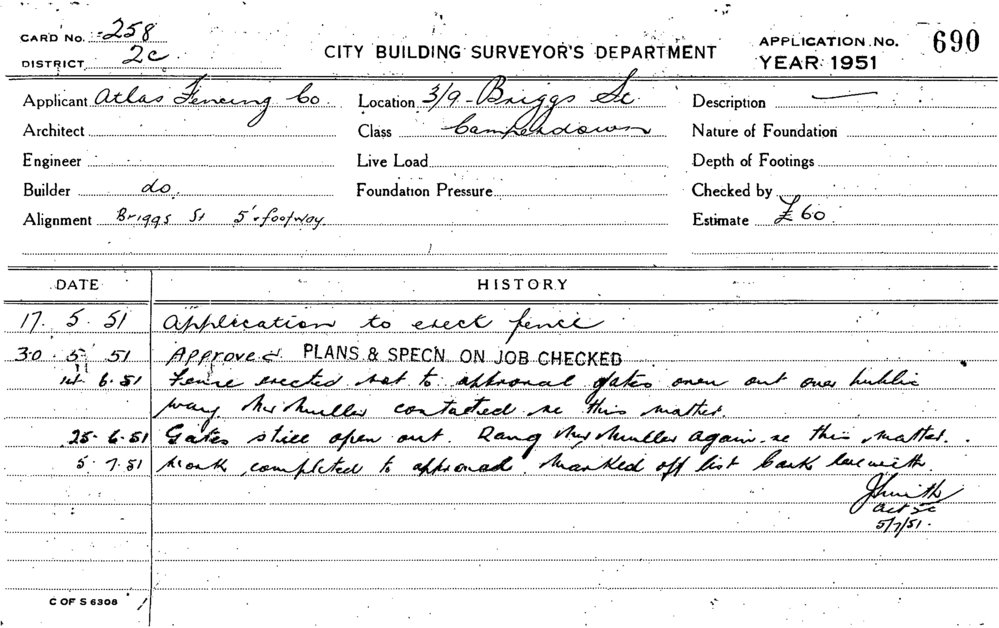 CARD No. 258
DISTRICT 2c
CITY BUILDING SURVEYOR'S DEPARTMENT
APPLICATION No. 690
YEAR 1951
Applicant Atlas Fencing Co. Location 3/9 - Briggs St Description —
Architect Class Camperdown Nature of Foundation
Engineer Live Load Depth of Footings
Builder do Foundation Pressure Checked by
Alignment Briggs St 5' footway. Estimate £60
DATE HISTORY
17. 5. 51 Application to erect fence
30 5 51 Approved PLANS & SPECN. ON JOB CHECKED
14 6. 51 Fence erected not to approval gates open out over public
way Mr Muller contacted re this matter.
25. 6. 51 Gates still open out. Rang Mr Muller again re this matter.
5. 7. 51 Work completed to approval. Marked off list Card
JSmith
5/7/51.
C OF S 6308